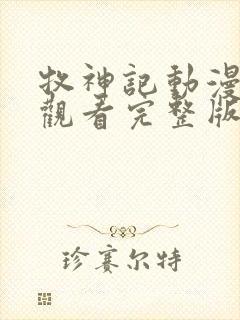 牧神記動漫
觀看完整版
珍赛尔特